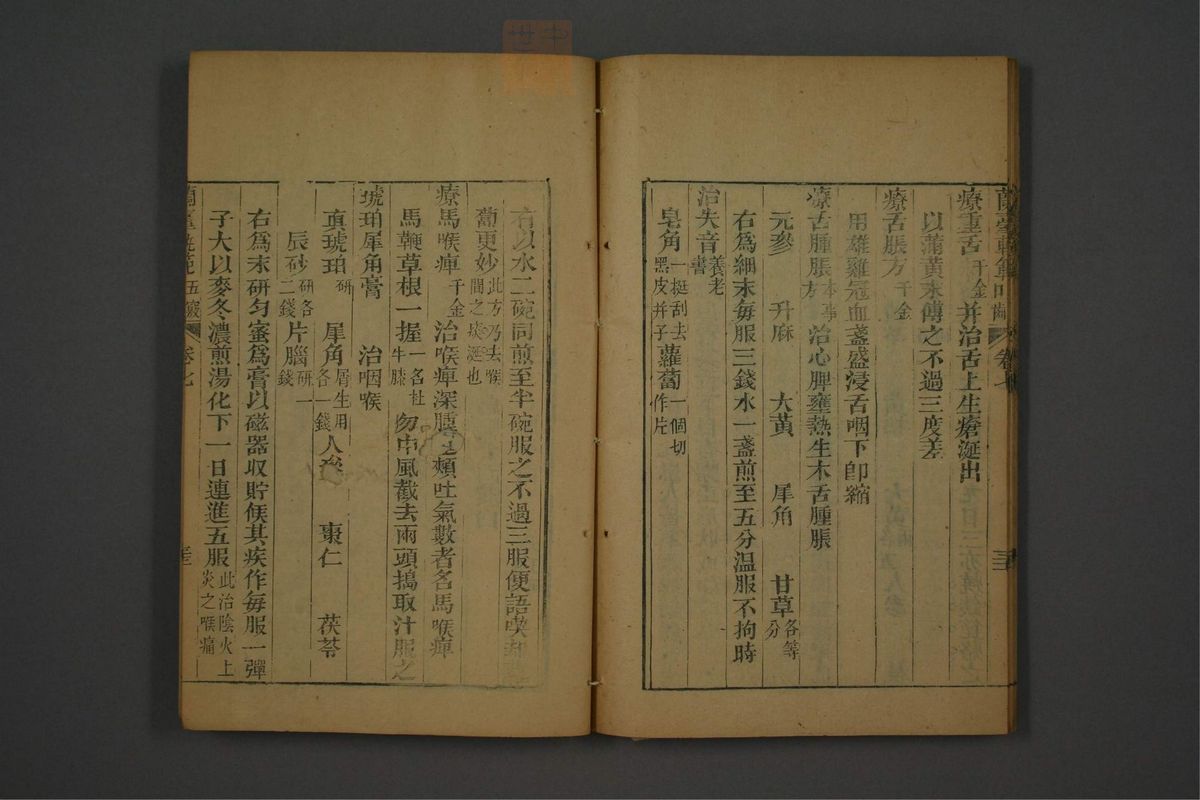 療重舌千金并治舌上生瘡涎出
以蒲黃末傅之不過三度差
療舌脹方千金
用雄雞冠血盞盛浸舌咽下卽縮
療舌腫脹方本事治心脾壅熱生木舌腫脹
元參 升麻 大黃 犀角 甘草各等分
右爲細末每服三錢水一盞煎至五分温服不拘時
治失音養老書
皂角一挺刮去黑皮并子蘿蔔一個切作片
右以水二碗同煎至半碗服之不過三服便語喫
蔔更妙此方乃去喉間之痰涎也
療馬喉痺千金治喉痺深腫連頰吐氣數者名馬喉痺
馬鞭草根一握一名牡牛膝勿中風截去兩頭搗取汁服之
琥珀犀角膏 治咽喉
眞琥珀研 犀角屑生用各一錢人參 棗仁 茯苓
辰砂研各二錢片腦研一錢
右爲末研匀蜜爲膏以磁器收貯候其疾作每服一彈
子大以麥冬濃煎湯化下一日連進五服此治陰火上炎之喉痛
卷七